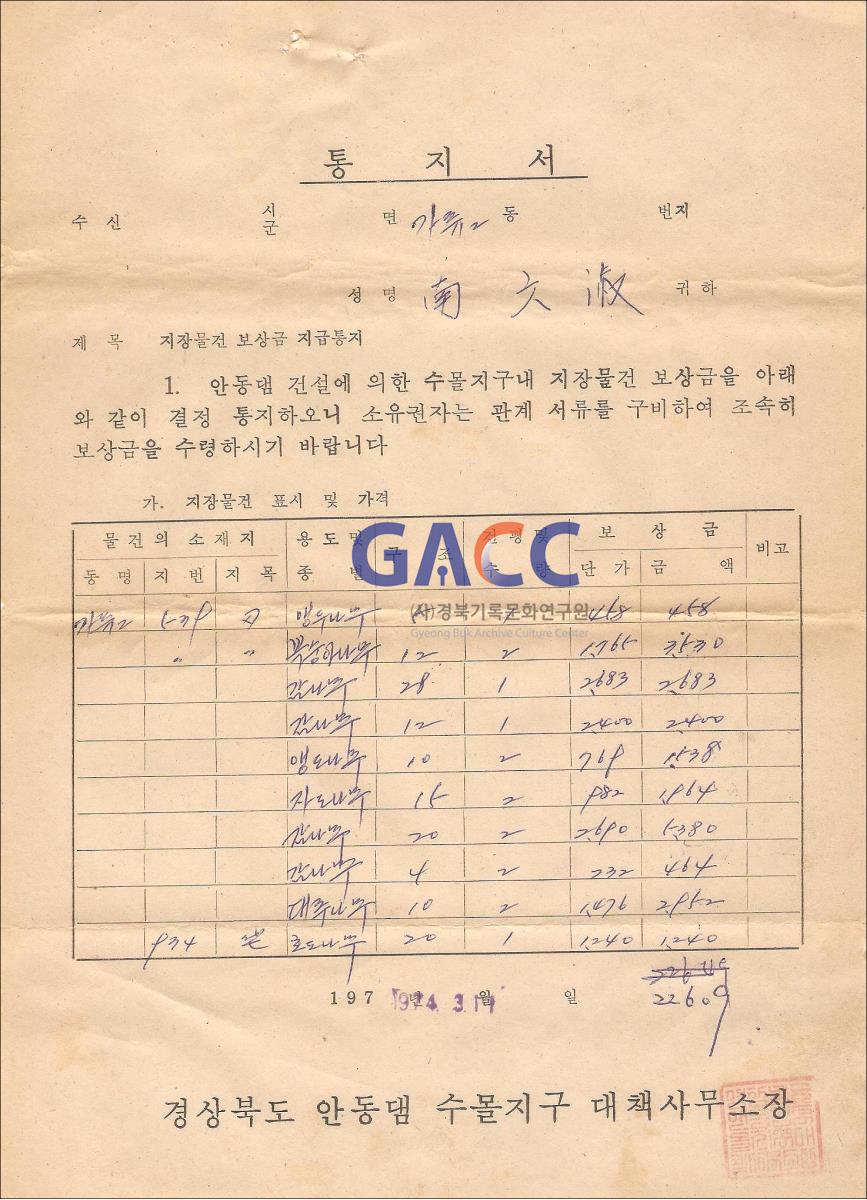 통 지 서
수 신 시 군 면 가류2 동 번지
성 명 南 六 淑 귀 하
제 목 지장물건 보상금 지급통지
1. 안동댐 건설에 의한 수몰지구내 지장물건 보상금을 아래
와 같이 결정 통지하오니 소유권자는 관계 서류를 구비하여 조속히
보상금을 수령하시기 바랍니다
가. 지장물건 표시 및 가격
물건의 소재지 용도및 종별 구 조 건평및 수량 보 상 금 비고
동 명 지 번 지 목 단 가 금 액
GACC
(사)경북기록문화연구원
Gyeong Buk Archive Culture Center
가류2 앵두나무 458
" " 복숭아나무 12 2 1,765 3,530
감나무 28 1 2,683 2,683
감나무 12 1 2,400 2,400
앵도나무 10 2 769 1,538
자도나무 15 2 982 1,964
감나무 20 2 2,690 5,380
감나무 4 2 232 464
대추나무 10 2 1,476 2,952
934 호도나무 20 1 1,240 1,240
22609
197 년 월 일
1974. 3. 14
경상북도 안동댐 수몰지구 대책사무소장